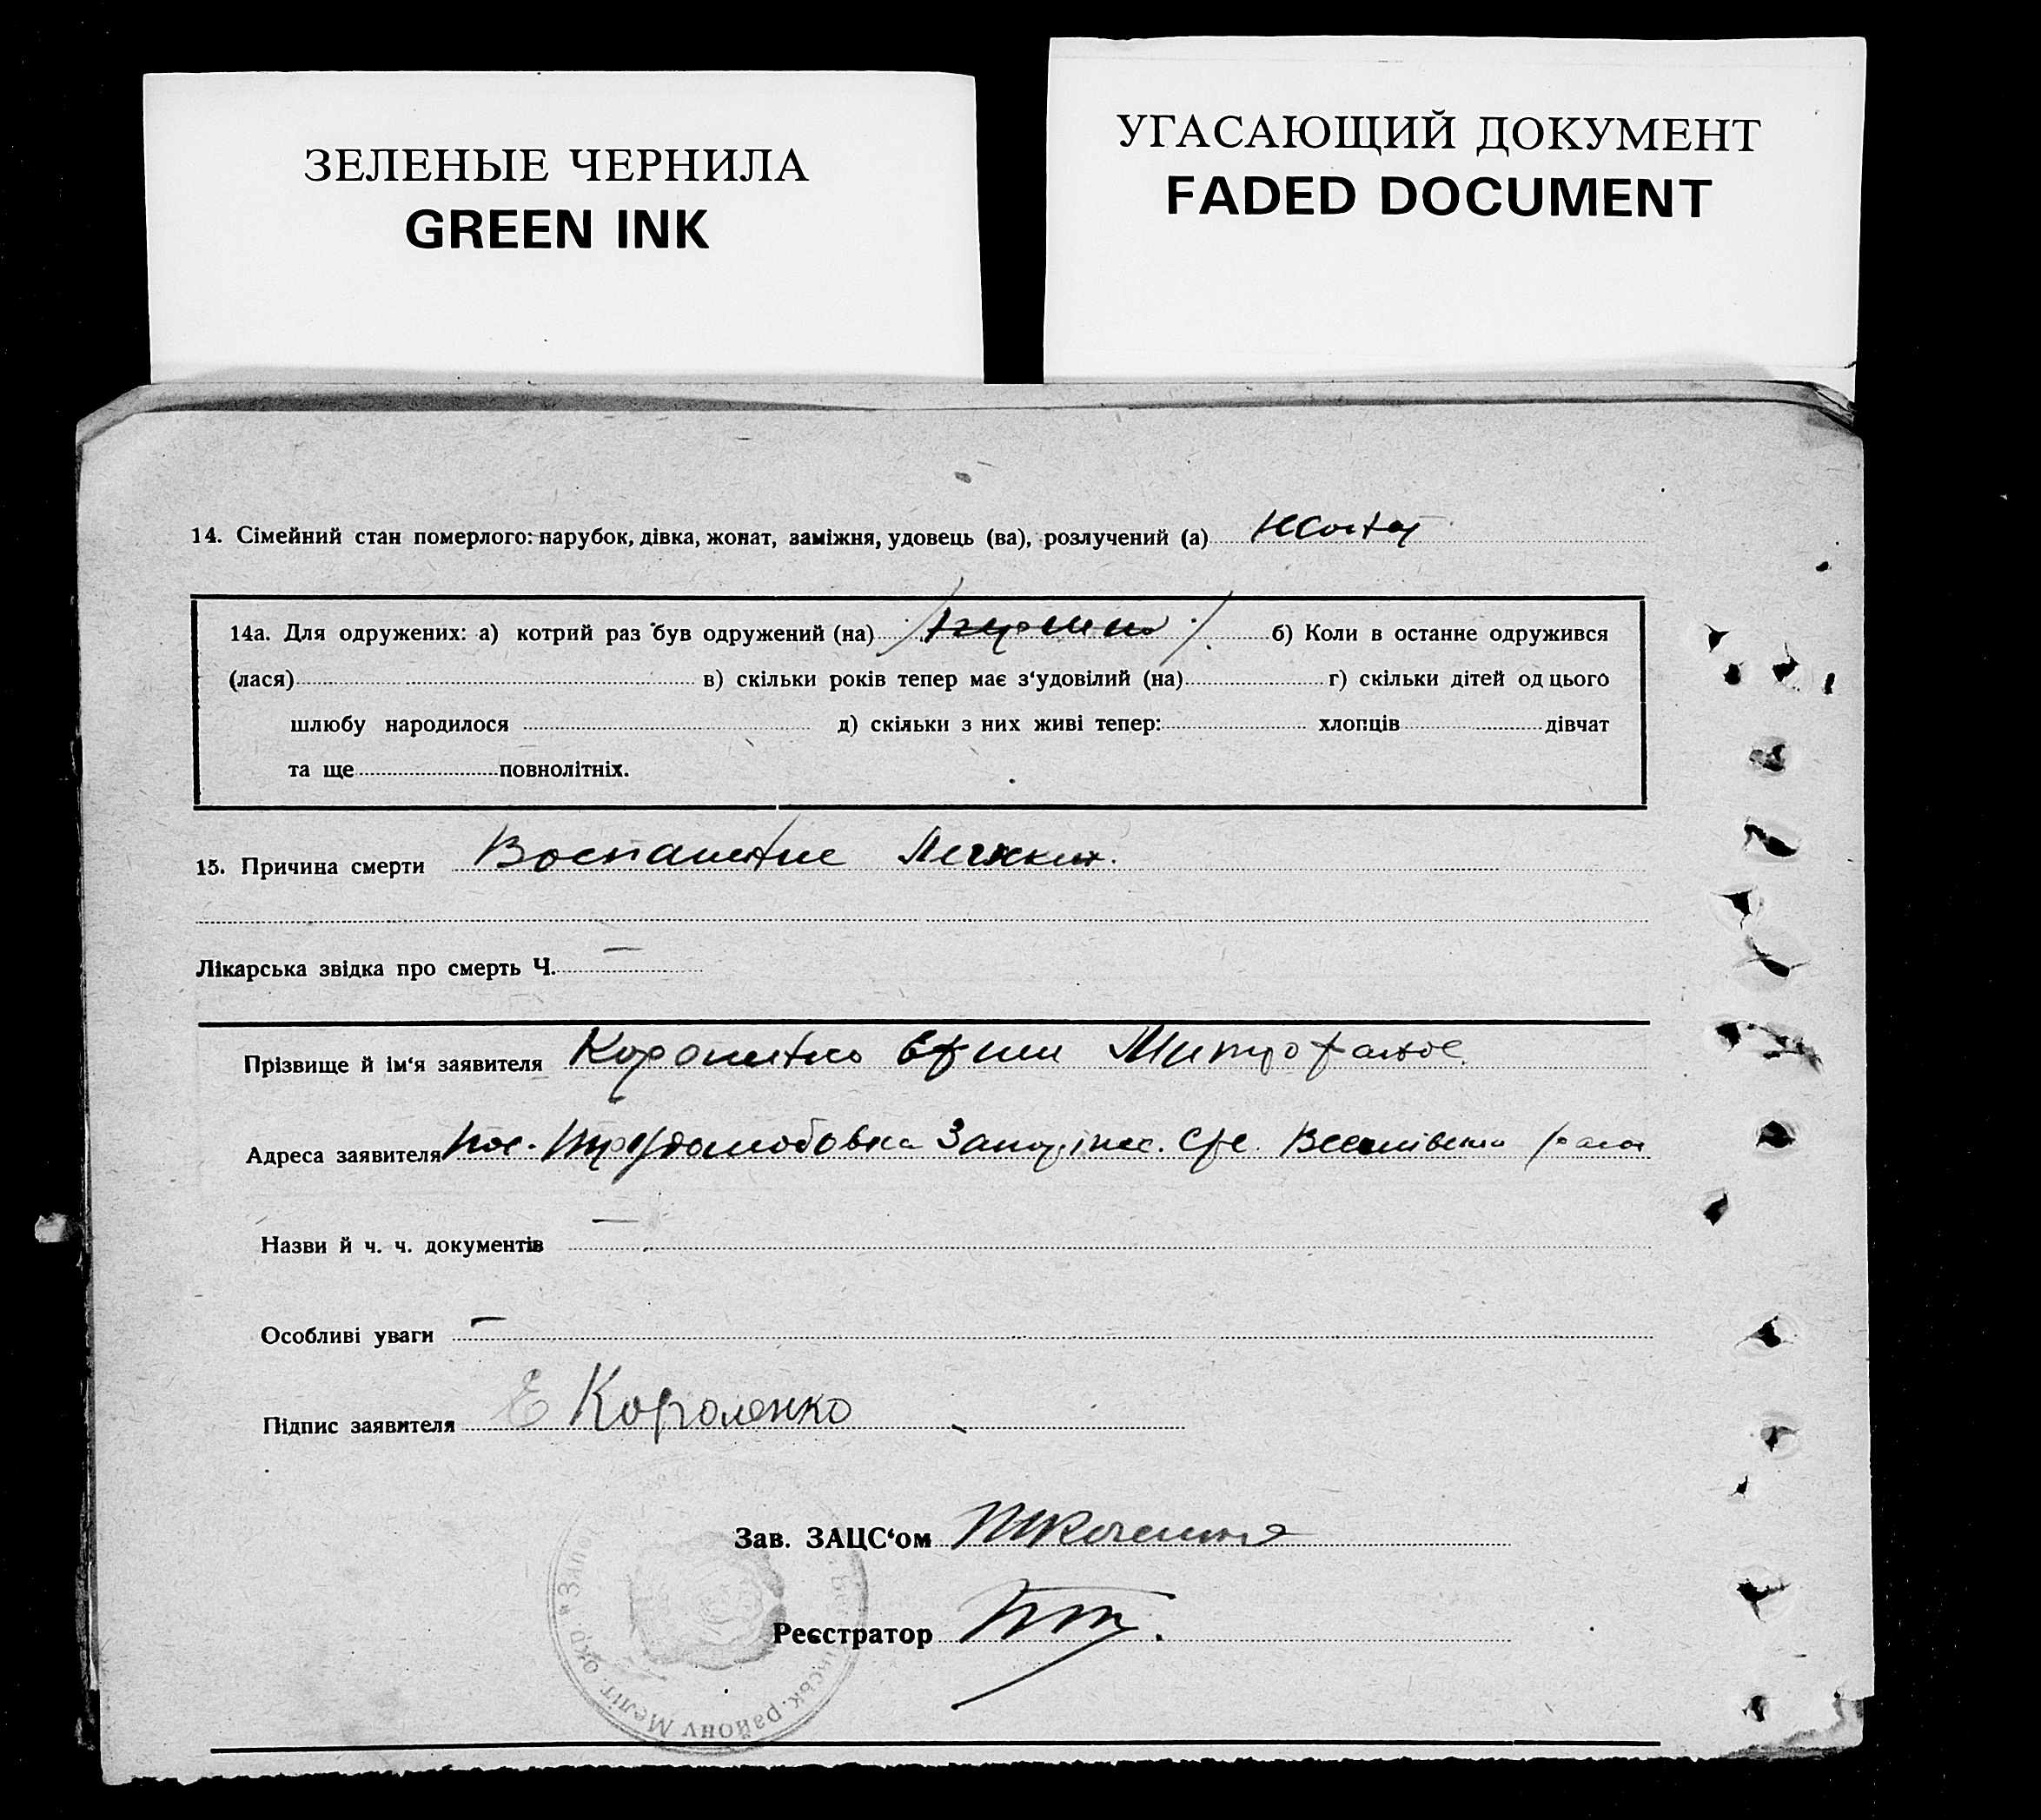 ЗЕЛЕНЫЕ ЧЕРНИЛА
GREEN INK
УГАСАЮЩИЙ ДОКУМЕНТ
FADED DOCUMENT
14. Сімейний стан померлого: парубок, дівка, жонат, заміжня, удовець (ва), розлучений (а)
14а. Для одружених: а) котрий раз був одружений (на) б) Коли в останне одружився
(лася) в) скільки років тепер має з‘удовілий (на) г) скільки дітей од цього
шлюбу народилося д) скільки з них живі тепер: хлопців дівчат
та ще повнолітніх.
15. Причина смерти Воспаление Легких.
Лікарська звідка про смерть Ч. —
Прізвище й ім‘я заявителя Короленко
Адреса заявителя пос. Трудолюбовка
Назви й ч. ч. документів —
Особливі уваги —
Підпис заявителя Е Короленко
Зав. ЗАЦС‘ом
Реєстратор
району Меліт. окр.